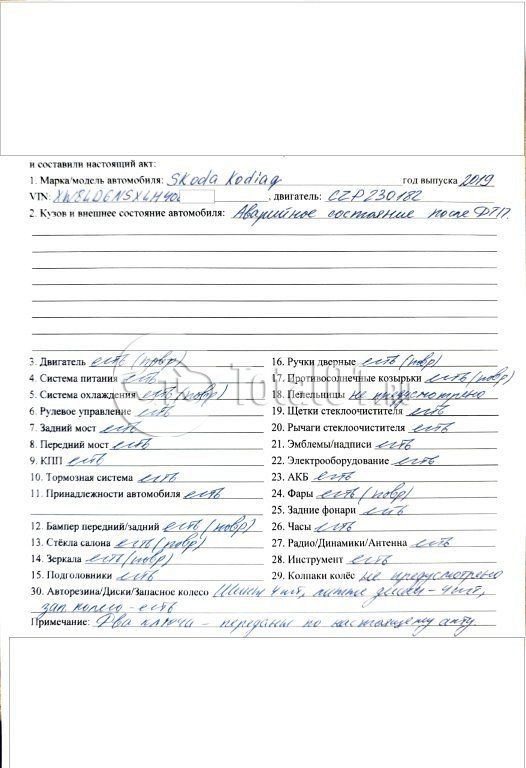 и составили настоящий акт:
1. Марка/модель автомобиля: Skoda Kodiaq год выпуска 2019
VIN: XW8LD6NSXLH40 , двигатель: CZP230182
2. Кузов и внешнее состояние автомобиля: Аварийное состояние после ДТП.
3. Двигатель есть (повр)
4. Система питания есть
5. Система охлаждения есть (повр)
6. Рулевое управление есть
7. Задний мост есть
8. Передний мост есть
9. КПП есть
10. Тормозная система есть
11. Принадлежности автомобиля есть
12. Бампер передний/задний есть (повр)
13. Стёкла салона есть (повр)
14. Зеркала есть (повр)
15. Подголовники есть
16. Ручки дверные есть (повр)
17. Противосолнечные козырьки есть (повр)
18. Пепельницы не предусмотрено
19. Щетки стеклоочистителя есть
20. Рычаги стеклоочистителя есть
21. Эмблемы/надписи есть
22. Электрооборудование есть
23. АКБ есть
24. Фары есть (повр)
25. Задние фонари есть
26. Часы есть
27. Радио/Динамики/Антенна есть
28. Инструмент есть
29. Колпаки колёс не предусмотрено
30. Авторезина/Диски/Запасное колесо Шины 4 шт, литые диски - 4 шт,
зап колесо - есть
Примечание: Два ключа - переданы по настоящему акту.
Total01.ru